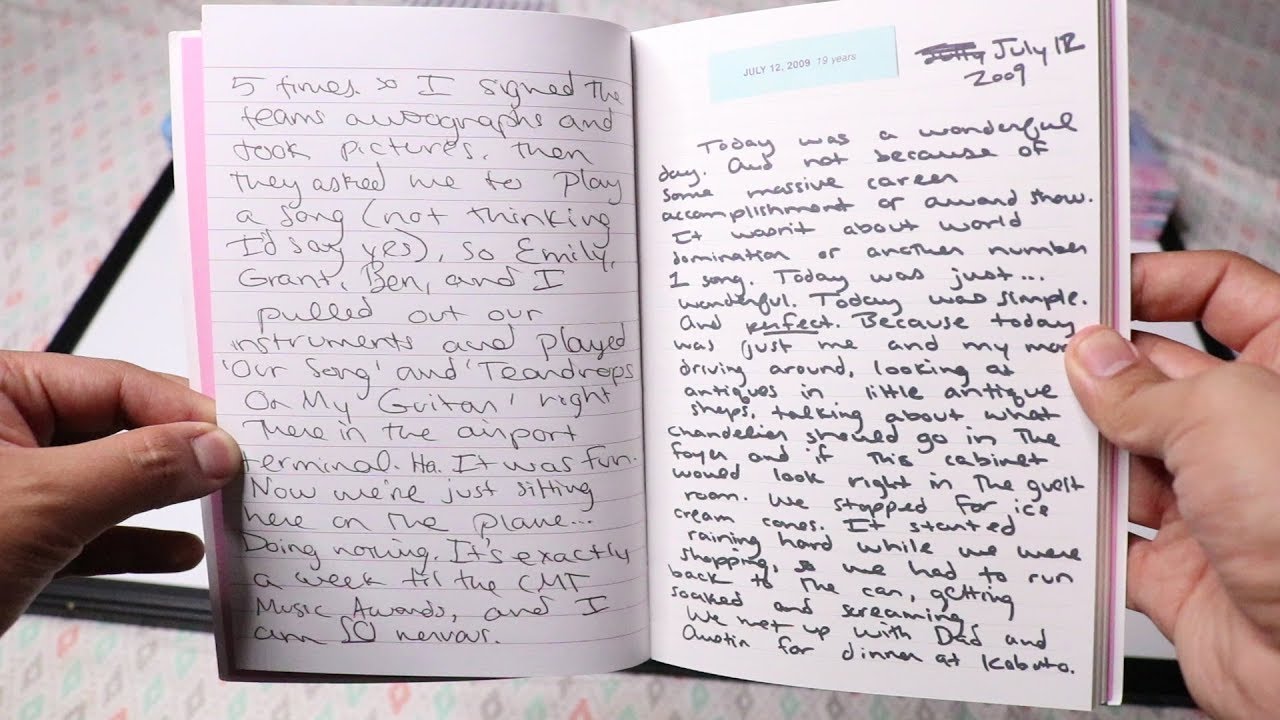 5 times. so I signed the
teams autographs and
took pictures. Then
they asked me to play
a song (not thinking
I'd say yes), so Emily,
Grant, Ben, and I
pulled out our
instruments and played
'Our Song' and 'Teardrops
On My Guitar' right
There in the airport
terminal. Ha. It was fun.
Now we're just sitting
here on the plane...
Doing nothing. It's exactly
a week til the CMT
Music Awards, and I
am SO nervous.
JULY 12, 2009 19 years
July 12
2009
Today was a wonderful
day. And not because of
some massive career
accomplishment or award show.
It wasn't about world
domination or another number
1 song. Today was just...
wonderful. Today was simple.
And perfect. Because today
was just me and my mom
driving around, looking at
antiques in little antique
shops, talking about what
chandelier should go in The
foyer and if This cabinet
would look right in The guest
room. We stopped for ice
cream cones. It started
raining hard while we were
shopping, so we had to run
back to The car, getting
soaked and screaming.
We met up with Dad and
Austin for dinner at Kabuto.